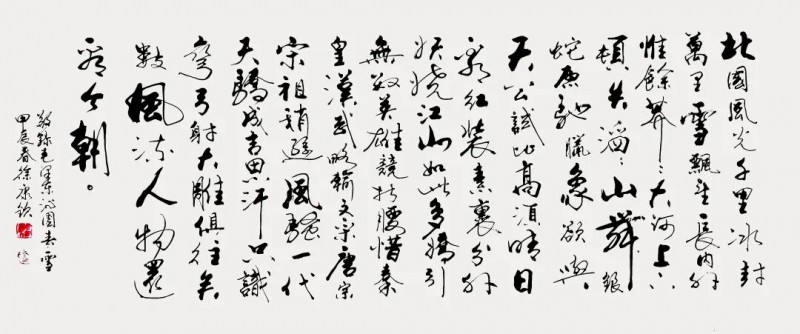 北國風光千里冰封
萬里雪飄望長内外
惟餘莽〻大河上下
頓失滔〻山舞銀
蛇原馳臘象欲與
天公試比高須晴日
看紅裝素裹分外
妖嬈江山如此多嬌引
無數英雄競折腰惜秦
皇漢武略輸文采唐宗
宋祖稍遜風騷一代
天驕成吉思汗只識
彎弓射大雕俱往矣
數風流人物還
看今朝。
敬錄毛澤東沁園春雪
甲辰春徐康